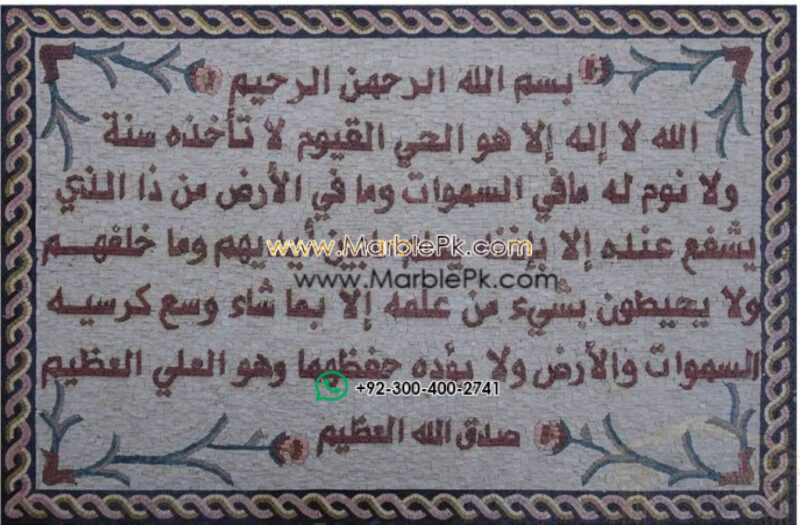 بسم الله الرحمن الرحيم
الله لا إله إلا هو الحي القيوم لا تأخذه سنة
ولا نوم له مافي السموات وما في الأرض من ذا الذي
يشفع عنده إلا بإذنه بين أيديهم وما خلفهم
www.MarblePk.com
www.MarblePk.com
ولا يحيطون بشيء من علمه إلا بما شاء وسع كرسيه
السموات والأرض ولا يؤده حفظهما وهو العلي العظيم
+92-300-400-2741
صدق الله العظيم